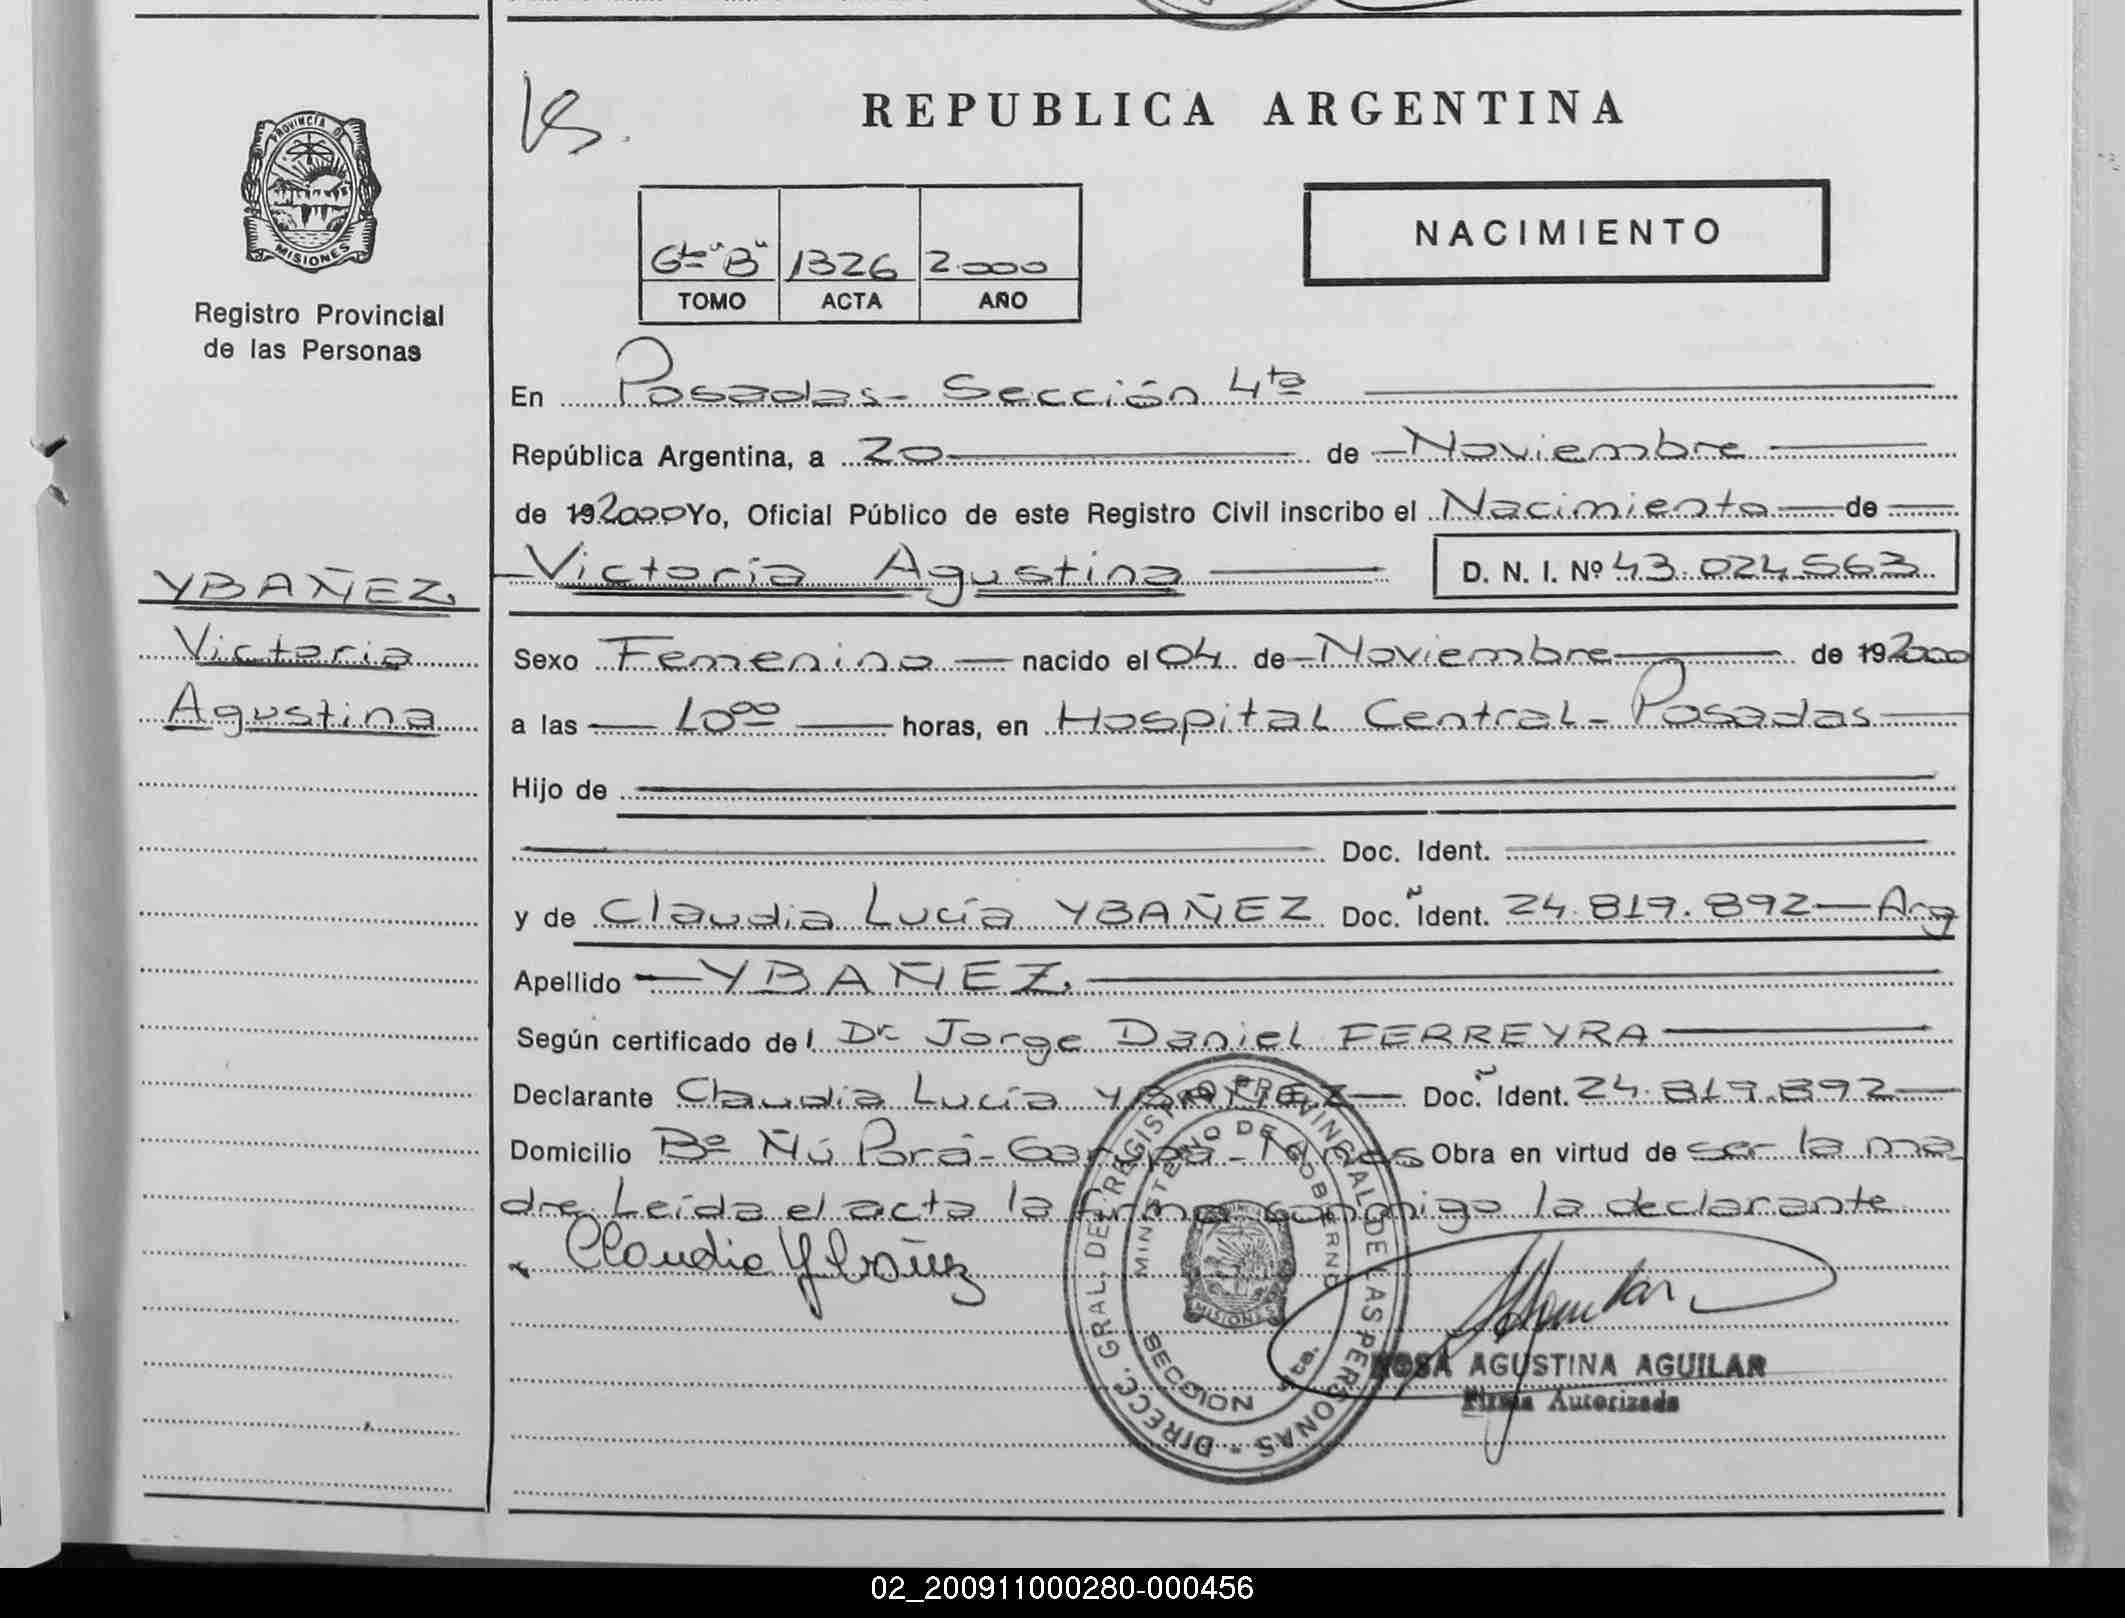 REPUBLICA ARGENTINA
PROVINCIA DE
MISIONES
Registro Provincial
de las Personas
6to "B" 1326 2.000
TOMO ACTA AÑO
NACIMIENTO
En Posadas - Sección 4ta
República Argentina, a 20 de Noviembre
de 192000 Yo, Oficial Público de este Registro Civil inscribo el Nacimiento de
YBAÑEZ,
Victoria
Agustina
Victoria Agustina D. N. I. Nº 43.024.563
Sexo Femenino nacido el 04 de Noviembre de 192000
a las 10 00 horas, en Hospital Central - Posadas
Hijo de
Doc. Ident.
y de Claudia Lucía YBAÑEZ Doc. Ident. 24.819.892 - Arg
Apellido YBAÑEZ.
Según certificado del Dr. Jorge Daniel FERREYRA
Declarante Claudia Lucía YBAÑEZ Doc. Ident. 24.819.892
Domicilio Bº Ñú Porá - Garupá - Mnes Obra en virtud de ser la ma
dre. Leída el acta la firma conmigo la declarante
Claudia Ybañez
DIRECC. GRAL. DEL REGISTRO PROVINCIAL DE LAS PERSONAS
MINISTERIO DE GOBIERNO
MISIONES
SECCION 4ta.
ROSA AGUSTINA AGUILAR
Firma Autorizada
02_200911000280-000456